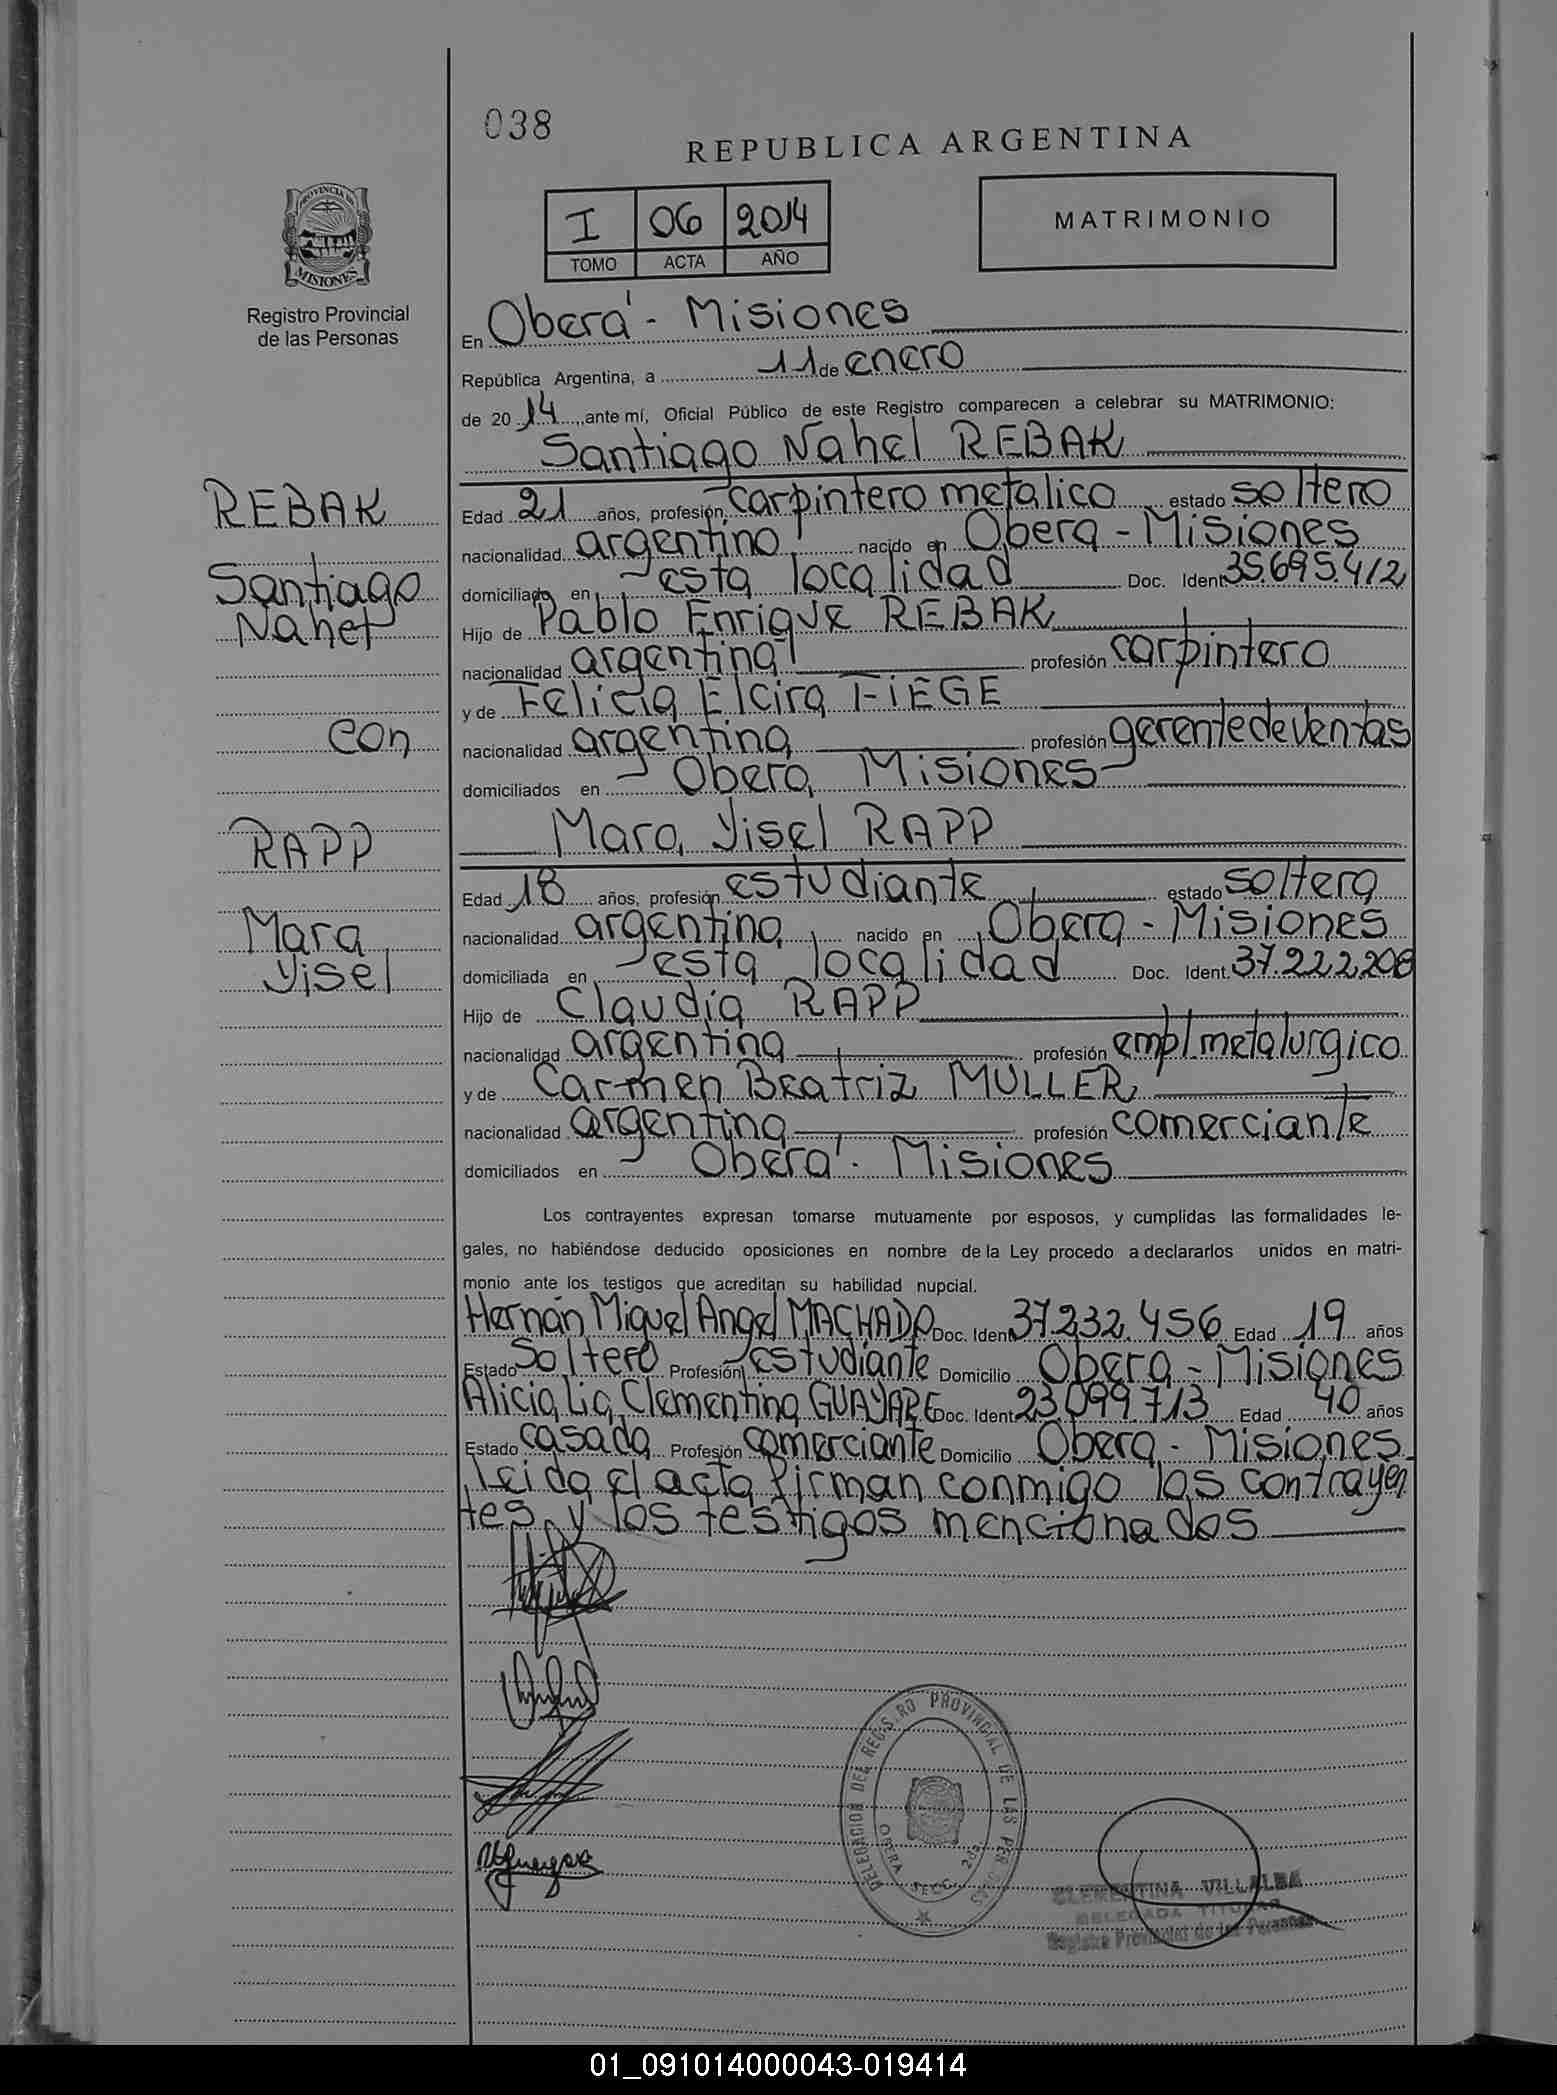 038
REPUBLICA ARGENTINA
I 06 2014
TOMO ACTA AÑO
MATRIMONIO
PROVINCIA DE MISIONES
Registro Provincial
de las Personas
En Oberá - Misiones
República Argentina, a 11 de enero
de 2014, ante mí, Oficial Público de este Registro comparecen a celebrar su MATRIMONIO:
Santiago Nahel REBAK
REBAK
Santiago
Nahel
con
RAPP
Mara
Yisel
Edad 21 años, profesión carpintero metalico estado soltero
nacionalidad argentino nacido en Obera - Misiones
domiciliado en esta localidad Doc. Ident 35.695.412
Hijo de Pablo Enrique REBAK
nacionalidad argentina profesión carpintero
y de Felicia Elcira FIEGE
nacionalidad argentina profesión gerente de ventas
domiciliados en Obera, Misiones
Mara Yisel RAPP
Edad 18 años, profesión estudiante estado soltera
nacionalidad argentina nacido en Obera - Misiones
domiciliada en esta localidad Doc. Ident. 37.222.208
Hijo de Claudia RAPP
nacionalidad argentina profesión empl metalurgico
y de Carmen Beatriz MULLER
nacionalidad argentina profesión comerciante
domiciliados en Oberá. Misiones
Los contrayentes expresan tomarse mutuamente por esposos, y cumplidas las formalidades le-
gales, no habiéndose deducido oposiciones en nombre de la Ley procedo a declararlos unidos en matri-
monio ante los testigos que acreditan su habilidad nupcial.
Hernán Miguel Angel MACHADO Doc. Ident 37.232.456 Edad 19 años
Estado Soltero Profesión estudiante Domicilio Obera - Misiones
Alicia Lia Clementina GUAYARE Doc. Ident 23.099.713 Edad 40 años
Estado casada Profesión comerciante Domicilio Obera - Misiones
Leida el acta firman conmigo los contrayen
tes y los testigos mencionados
DELEGACION DEL REGISTRO PROVINCIAL DE LAS PERSONAS
OBERA SECC. 2da
CLEMENTINA VILLALBA
DELEGADA TITULAR
Registro Provincial de las Personas
01_091014000043-019414